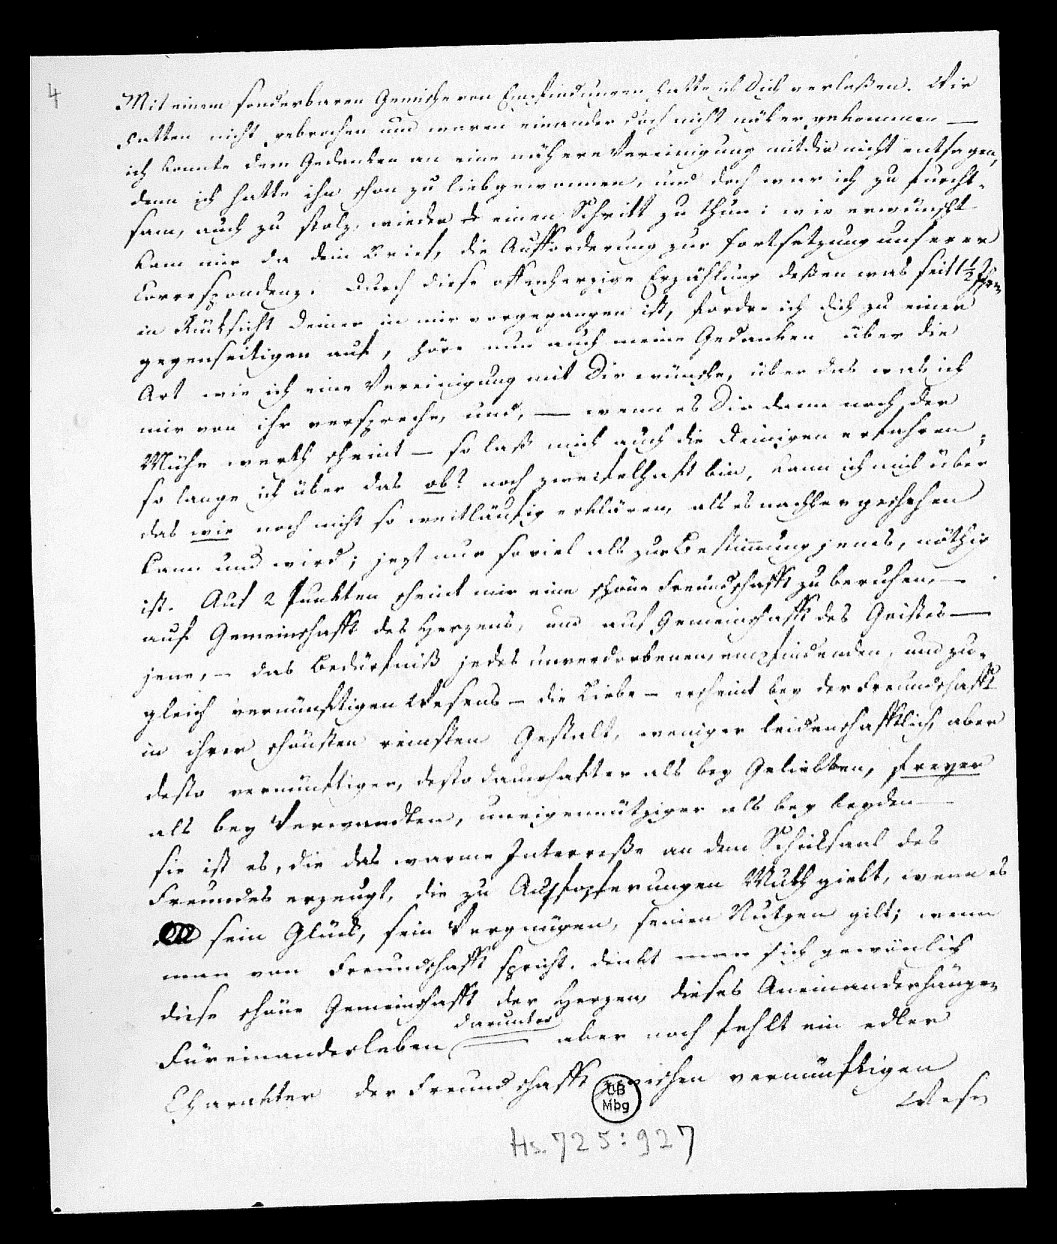 4
Mit einem sonderbaren Gemische von Empfindungen hatte ich Dich verlaßen. Wir
hatten nicht gebrochen und waren einander doch nicht näher gekommen —
ich konnte dem Gedanken an eine nähere Vereinigung mit dir nicht entsagen,
denn ich hatte ihn schon zu liebgewonnen, und doch war ich zu furcht-
sam, auch zu stolz, wieder einen Schritt zu thun: wie erwünscht
kam mir da dein Brief, die Aufforderung zur Fortsetzung unserer
Correspondenz. Durch diese offenherzige Erzählung deßen was seit 1½ Jahren
in Rüksicht Deiner in mir vorgegangen ist, fordre ich dich zu einer
gegenseitigen auf, höre nun auch meine Gedanken über die
Art wie ich eine Vereinigung mit Dir wünsche, über das was ich
mir von ihr verspreche, und, — wenn es Dir dann noch der
Mühe werth scheint — so laß mich auch die Deinigen erfahren;
so lange ich über das ob? noch zweifelhaft bin, kann ich mich über
das wie noch nicht so weitläufig erklären, als es nachher geschehen
kann und wird; jezt nur soviel als zur Bestimmung jenes, nöthig
ist. Auf 2 Punkten scheint mir eine schöne Freundschafft zu beruhen, —
auf Gemeinschafft des Herzens, und auf Gemeinschafft des Geistes —
jene, — das Bedürfniß jedes unverdorbenen, empfindenden, und zu-
gleich vernünftigen Wesens — die Liebe — erscheint bey der Freundschafft
in ihrer schönsten reinsten Gestalt, weniger leidenschafftlich, aber
desto vernünftiger, desto dauerhafter als bey Geliebten, freyer
als bey Verwandten, uneigennütziger als bey beyden —
sie ist es, die das warme Interreße an dem Schiksaal des
Freundes erzeugt, die zu Aufopferungen Muth giebt, wenn es
sein Glück, sein Vergnügen, seinen Nutzen gilt; wenn
man von Freundschafft spricht, denkt man sich gewönlich
diese schöne Gemeinschafft der Herzen, dieses Aneinanderhängen
Füreinanderleben darunter — aber noch fehlt ein edler
Charakter der Freundschafft zwischen vernünftigen
Wesen
UB
Mbg
Hs. 725:927